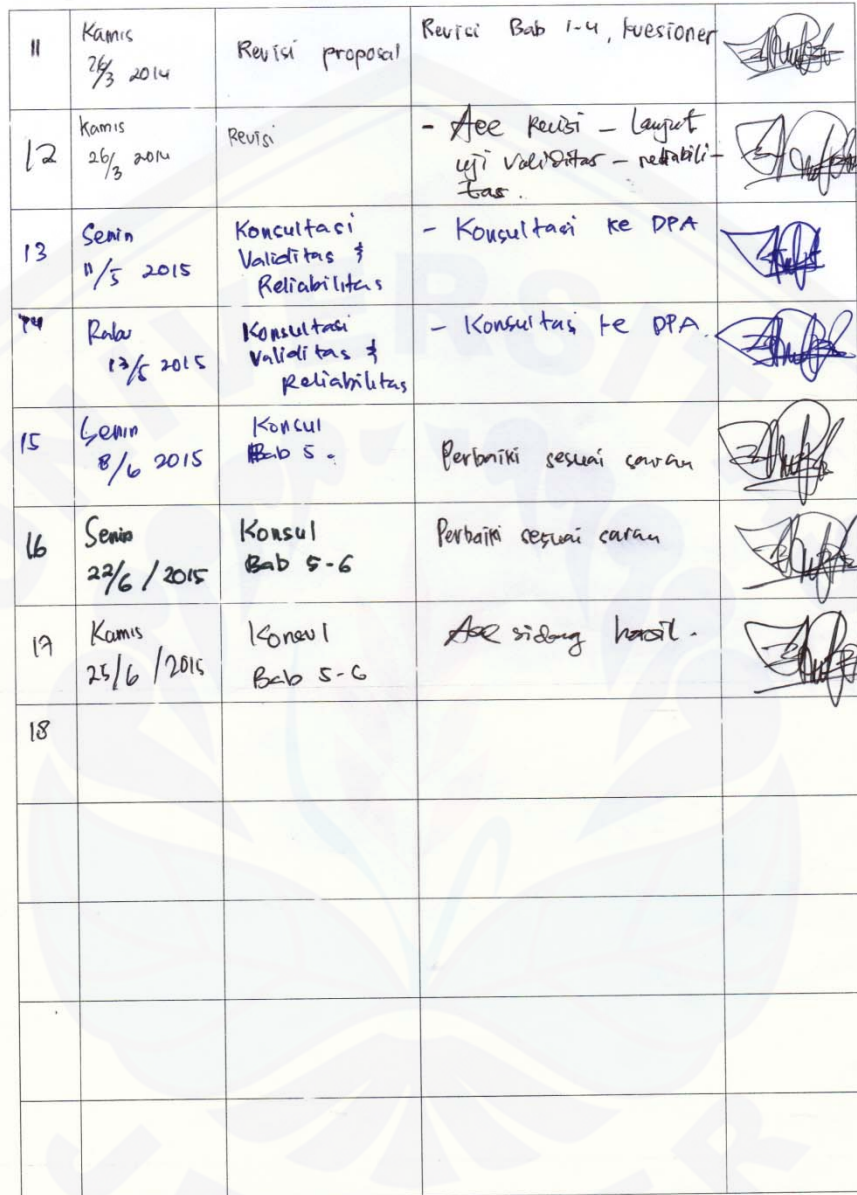 11
Kamis
26/3 2014
Revisi proposal
Revisi Bab 1-4, kuesioner
12
Kamis
26/3 2014
Revisi
- Acc Revisi - Lanjut
uji Validitas - reliabili-
tas.
13
Senin
11/5 2015
Konsultasi
Validitas &
Reliabilitas
- Konsultasi ke DPA
14
Rabu
13/5 2015
Konsultasi
Validitas &
Reliabilitas
- Konsultasi ke DPA.
15
Senin
8/6 2015
Konsul
Bab 5.
Perbaiki sesuai saran
16
Senin
22/6 / 2015
Konsul
Bab 5-6
Perbaiki sesuai saran
17
Kamis
25/6 / 2015
Konsul
Bab 5-6
Acc sidang hasil.
18
UNIVERSITAS